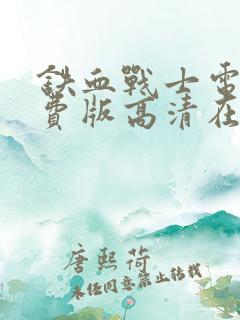 铁血战士雷
费版高清在
唐熙荷
未经同意禁止转载